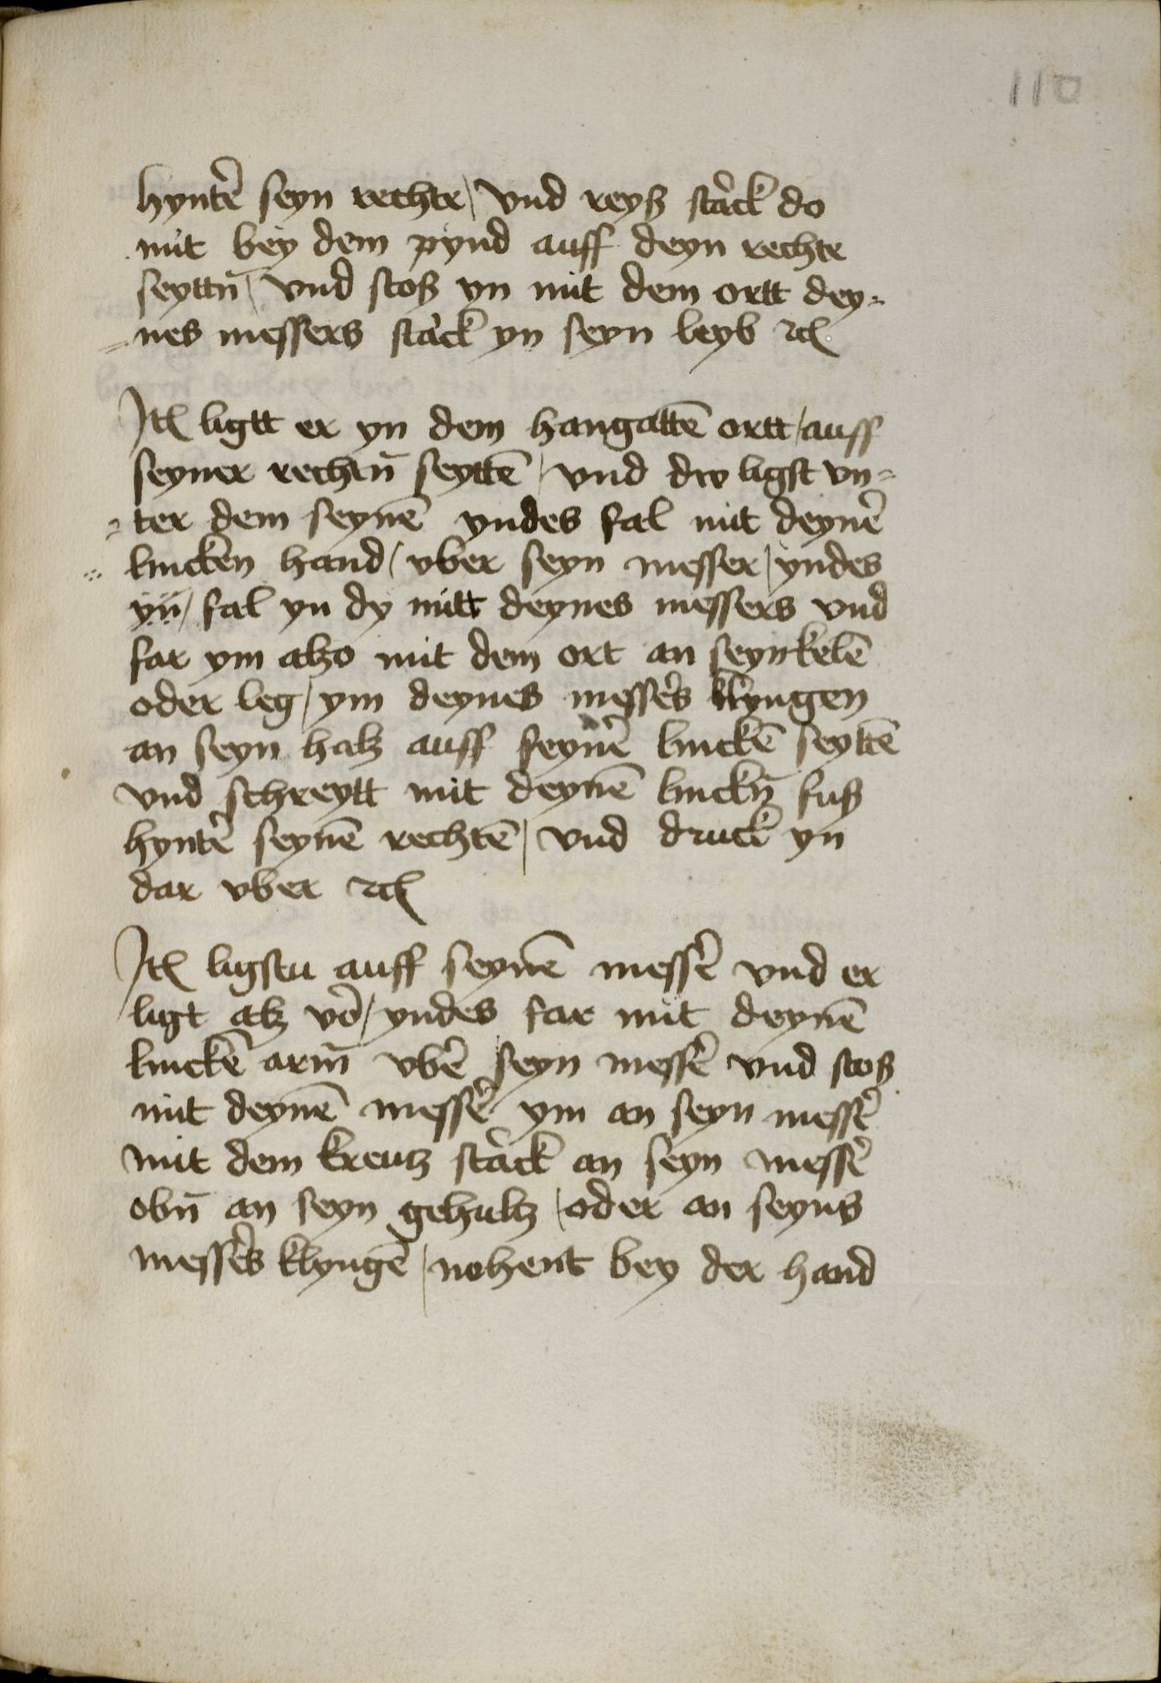 110
hynter̄ seyn rechte / vnd reyß starck do
mit bey dem pynd auff deyn rechte
seyttn̄ / vnd stoß yn mit dem ortt dey=
=nes messers starck yn seyn leyb ꝛc
Itꝫ ligtt er yn dem hangattē ortt / auff
seyner rechtn̄ seyttē / vnd dw ligst vn=
=ter dem seynē yndes fal mit deynē
lincken hand / vber seyn messer / yndes
yn̄ / fal yn dy mitt deynes messers vnd
far ym alzo mit dem ort an seyn kelē
oder leg / ym deynes messers̄ klyngen
an seyn halz auff seyner̄ linckē seyttē
vnd schreytt mit deynē linckn̄ fuß
hynter̄ seynē rechtē / vnd druck yn
dar vber ꝛc
Itꝫ ligstu auff seynē messer̄ vnd er
ligt alz vor̄ / yndes far mit deynē
linckē arm̄ vber̄ seyn messer̄ vnd stoß
mit deynē messer̄ ym an seyn messer̄
mit dem kreutz starck an seyn messer̄
obn̄ an seyn gehultz / oder an seyns
messers̄ klyngē / nohent bey der hand